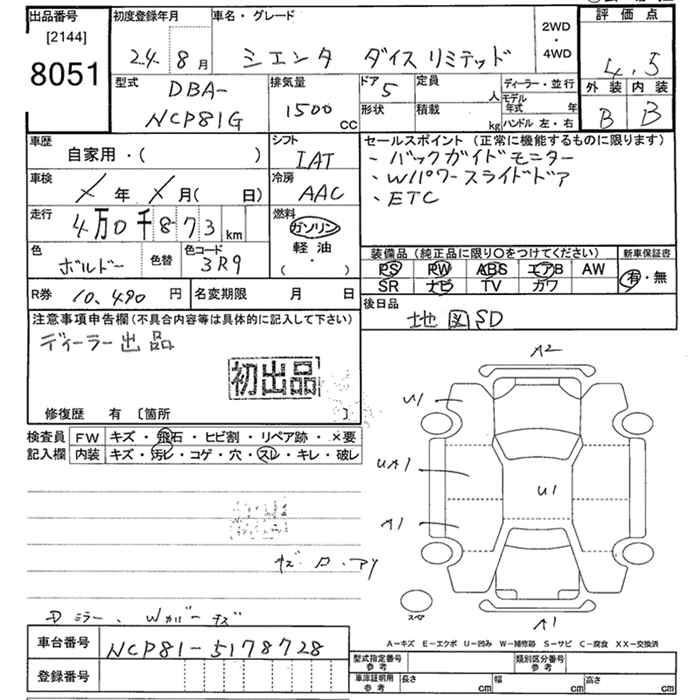 出品番号 初度登録年月 車名・グレード 2WD・4WD 評価点
[2144]
8051 24年 8月 シエンタ ダイスリミテッド 4.5
型式 DBA-NCP81G 排気量 1500cc ドア 5 定員 人 ディーラー・並行 外装 内装
形状 積載 kg モデル年式 年 ハンドル 左・右 B B
車歴 自家用・( ) シフト IAT セールスポイント (正常に機能するものに限ります)
・バックガイドモニター
・Wパワースライドドア
・ETC
車検 年 月( 日) 冷房 AAC
走行 4万0千873km 燃料 ガソリン 軽油 (・)
色 ボルドー 色替 色コード 3R9
装備品 (純正品に限り○をつけてください) 新車保証書
PS PW ABS エアB AW 有・無
SR ナビ TV カワ
R券 10,490円 名変期限 月 日
後日品 地図SD
注意事項申告欄 (不具合内容等は具体的に記入して下さい)
ディーラー出品
初出品
修復歴 有 [箇所 ]
検査員 FW キズ・飛石・ヒビ割・リペア跡・×要
記入欄 内装 キズ・汚レ・コゲ・穴・スレ・キレ・破レ
A2
U1
UA1
U1
A1
スペア
A1
A-キズ E-エクボ U-凹み W-補修跡 S-サビ C-腐食 XX-交換済
車台番号 NCP81-5178728
登録番号
型式指定番号 参考 類別区分番号 参考
車庫証明用 参考 長さ cm 幅 cm 高さ cm